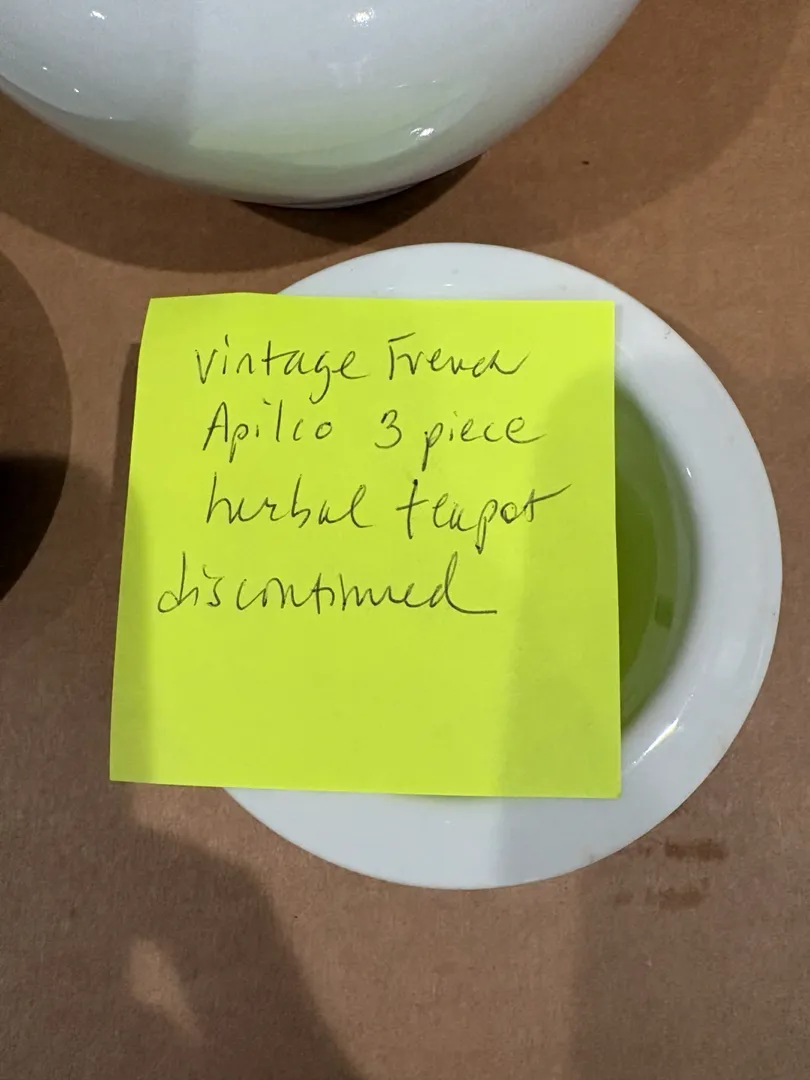 vintage French
Apilco 3 piece
herbal teapot
discontinued